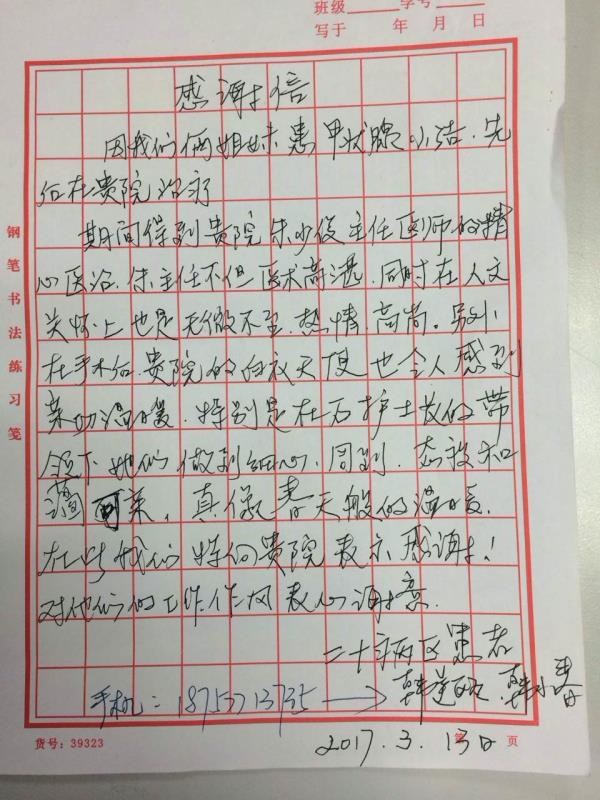 班级 学号
写于 年 月 日
感谢信
因我们俩姐妹患甲状腺小结.先
后在贵院治疗
期间得到贵院朱少俊主任医师的精
心医治.朱主任不但医术高湛.同时在人文
关怀上也是无微不至.热情.高尚。另外
在手术后.贵院的白衣天使也令人感到
亲切温暖.特别是在石护士长的带
领下她们做到细心.周到.态度和
蔼可亲.真像春天般的温暖.
在此我们特向贵院表示感谢!
对他们的工作作风表心谢意.
二十病区患者
手机:18753713735 韩莲 韩小春
2017.3.13日
钢笔书法练习笺
货号:39323 第 页